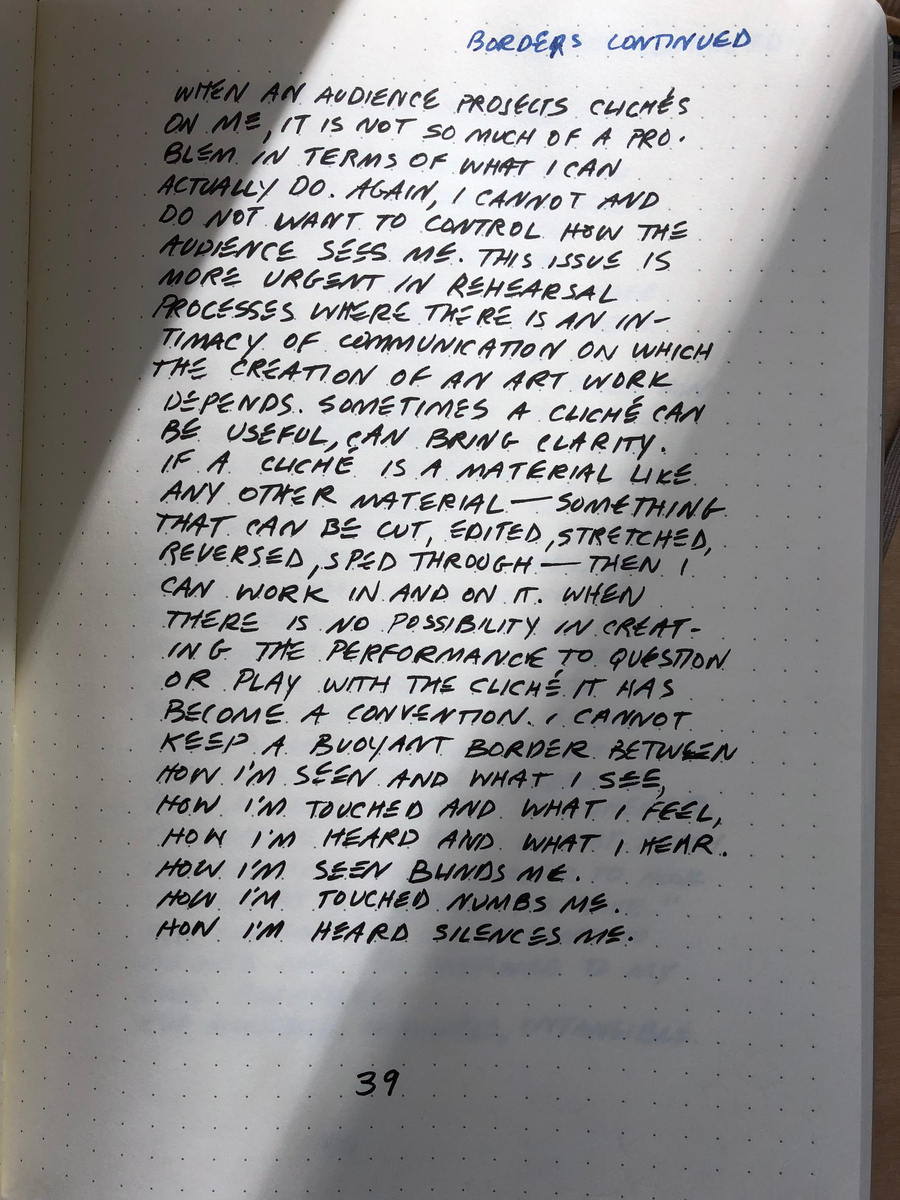 BORDERS CONTINUED
WHEN AN AUDIENCE PROJECTS CLICHÉS
ON ME, IT IS NOT SO MUCH OF A PRO-
BLEM IN TERMS OF WHAT I CAN
ACTUALLY DO. AGAIN, I CANNOT AND
DO NOT WANT TO CONTROL HOW THE
AUDIENCE SEES ME. THIS ISSUE IS
MORE URGENT IN REHEARSAL
PROCESSES WHERE THERE IS AN IN-
TIMACY OF COMMUNICATION ON WHICH
THE CREATION OF AN ART WORK
DEPENDS. SOMETIMES A CLICHÉ CAN
BE USEFUL, CAN BRING CLARITY.
IF A CLICHÉ IS A MATERIAL LIKE
ANY OTHER MATERIAL — SOMETHING
THAT CAN BE CUT, EDITED, STRETCHED,
REVERSED, SPED THROUGH — THEN I
CAN WORK IN AND ON IT. WHEN
THERE IS NO POSSIBILITY IN CREAT-
ING THE PERFORMANCE TO QUESTION
OR PLAY WITH THE CLICHÉ IT HAS
BECOME A CONVENTION. I CANNOT
KEEP A BUOYANT BORDER BETWEEN
HOW I'M SEEN AND WHAT I SEE,
HOW I'M TOUCHED AND WHAT I FEEL,
HOW I'M HEARD AND WHAT I HEAR.
HOW I'M SEEN BLINDS ME.
HOW I'M TOUCHED NUMBS ME.
HOW I'M HEARD SILENCES ME.
39